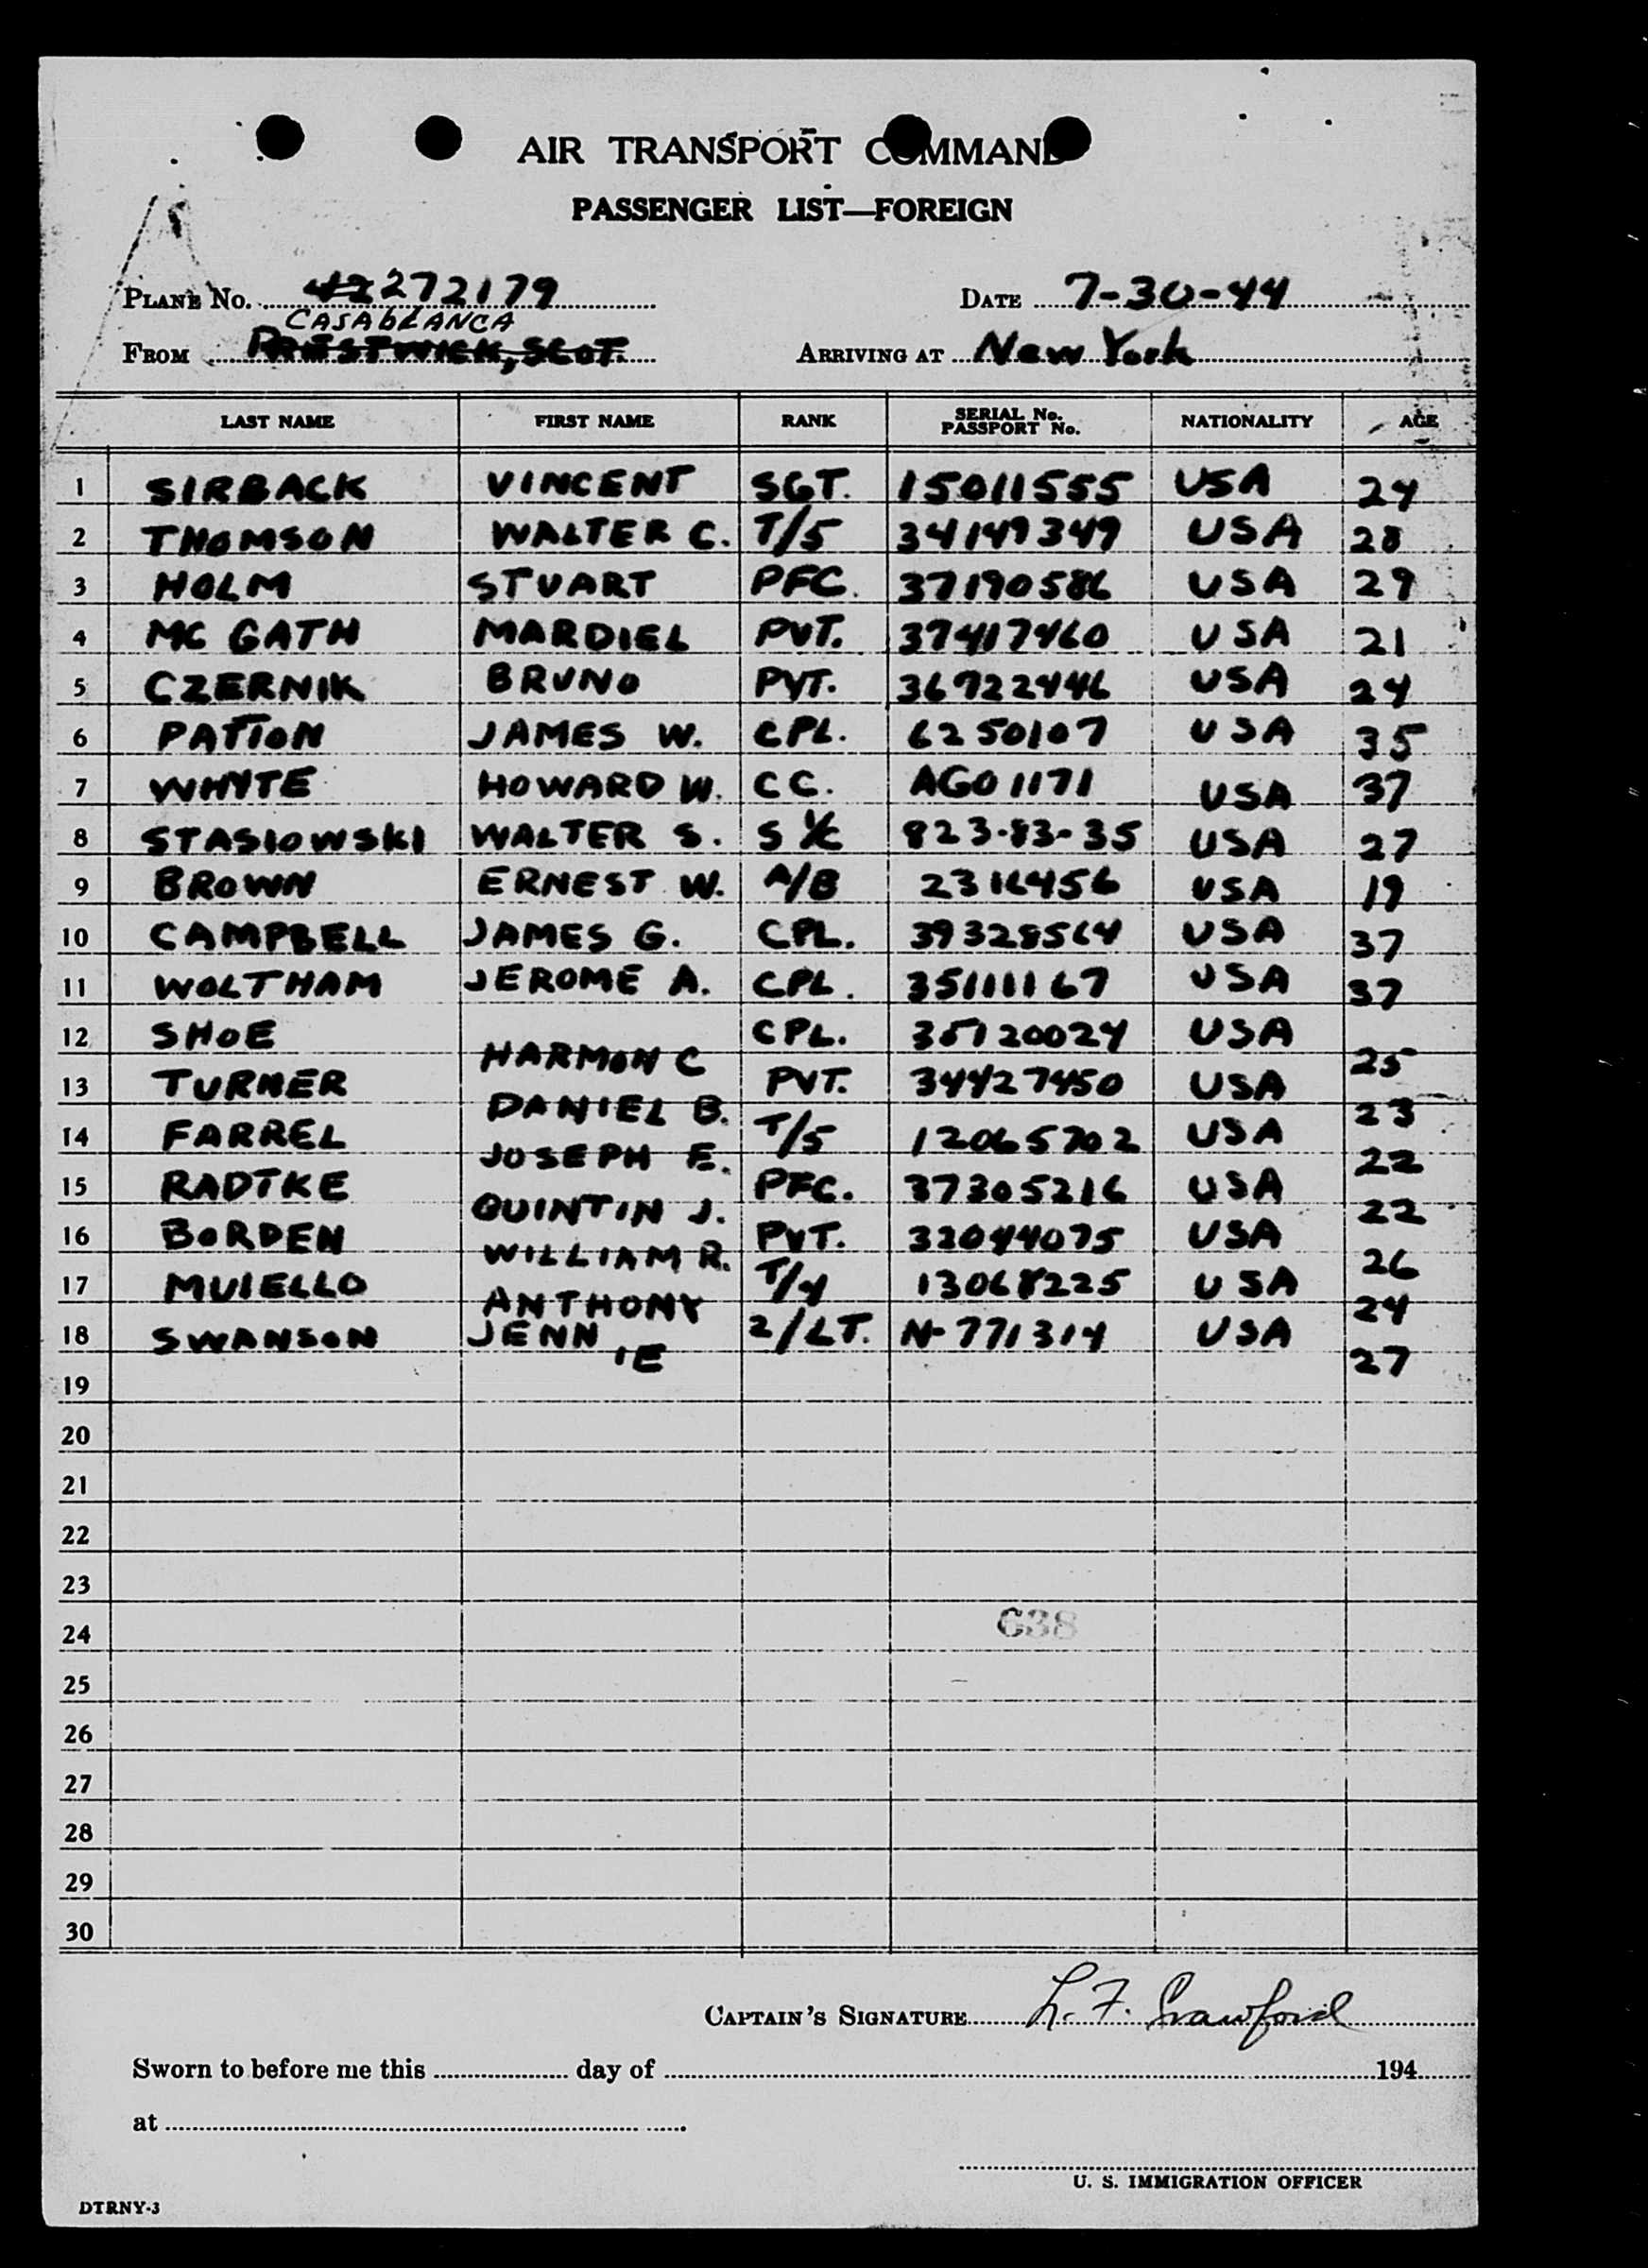 AIR TRANSPORT COMMAND
PASSENGER LIST—FOREIGN
PLANE No. 42272179 DATE 7-30-44
CASABLANCA
FROM PRESTWICK, SCOT. ARRIVING AT New York
LAST NAME FIRST NAME RANK SERIAL No. PASSPORT No. NATIONALITY AGE
1 SIRBACK VINCENT SGT. 15011555 USA 24
2 THOMSON WALTER C. T/5 34149349 USA 28
3 HOLM STUART PFC. 37190586 USA 29
4 MC GATH MARDIEL PVT. 37417460 USA 21
5 CZERNIK BRUNO PVT. 36722446 USA 24
6 PATTON JAMES W. CPL. 6250107 USA 35
7 WHYTE HOWARD W. CC. AGO 1171 USA 37
8 STASIOWSKI WALTER S. S 1/C 823-83-35 USA 27
9 BROWN ERNEST W. A/B 2316456 USA 19
10 CAMPBELL JAMES G. CPL. 39328564 USA 37
11 WOLTHAM JEROME A. CPL. 35111167 USA 37
12 SHOE HARMON C CPL. 35120024 USA 25
13 TURNER DANIEL B. PVT. 34427450 USA 23
14 FARREL JOSEPH E. T/5 12065702 USA 22
15 RADTKE QUINTIN J. PFC. 37305216 USA 22
16 BORDEN WILLIAM R. PVT. 32044075 USA 26
17 MUIELLO ANTHONY T/4 13068225 USA 24
18 SWANSON JENNIE 2/LT. N-771314 USA 27
19
20
21
22
23
24 638
25
26
27
28
29
30
CAPTAIN'S SIGNATURE L. F. Crawford
Sworn to before me this day of 194
at
U. S. IMMIGRATION OFFICER
DTRNY-3